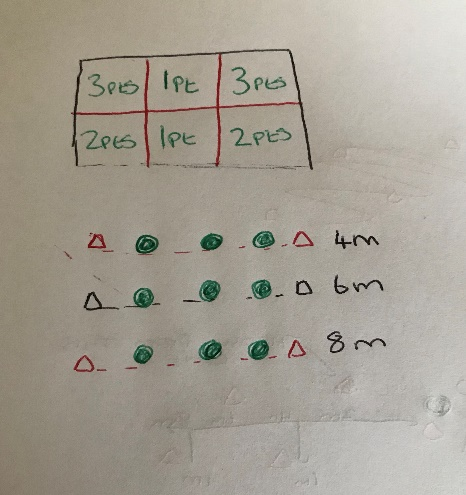 3PTS 1PT 3PTS
2PTS 1PT 2PTS
4m
6m
8m